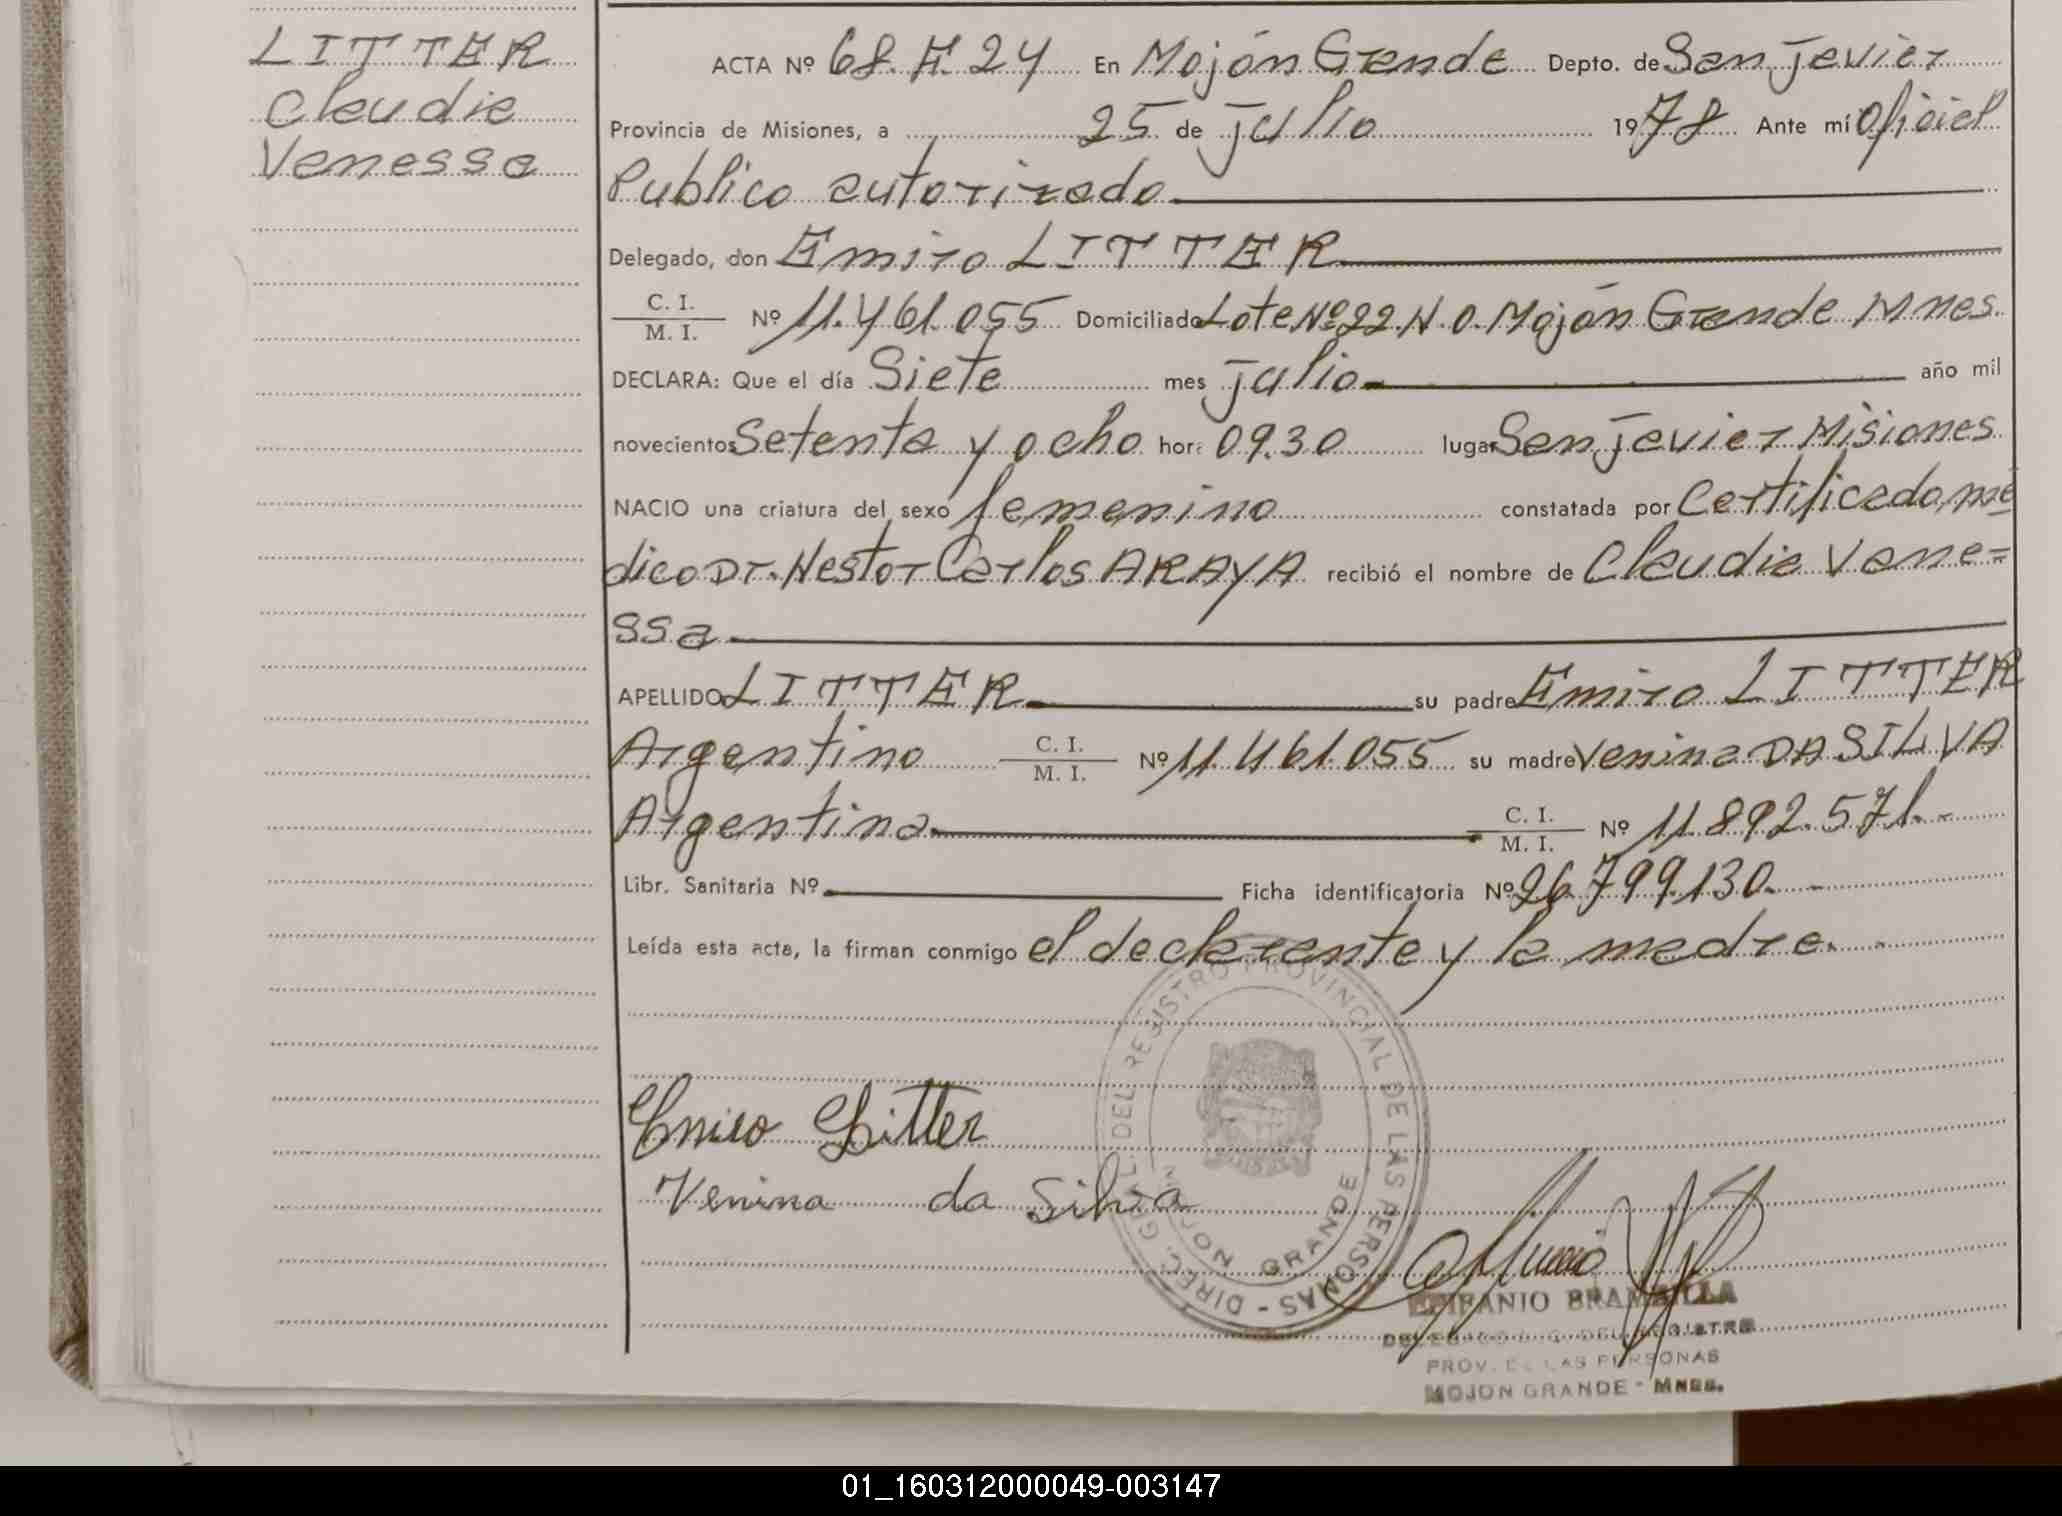 LITTER
Claudia
Vanessa
ACTA Nº 68. F. 24 En Mojón Grande Depto. de San Javier
Provincia de Misiones, a 25 de julio 1978 Ante mí Oficial
Publico autorizado
Delegado, don Emiro LITTER
C. I.
M. I.
Nº 11.461.055 Domiciliado Lote Nº 22 N.O. Mojón Grande Mnes.
DECLARA: Que el día Siete mes julio año mil
novecientos Setenta y ocho hor: 09.30 lugar San Javier Misiones
NACIO una criatura del sexo femenino constatada por Certificado mé
dico Dr. Nestor Carlos ARAYA recibió el nombre de Claudia Vane=
ssa
APELLIDO LITTER su padre Emiro LITTER
Argentino C. I. M. I. Nº 11.461.055 su madre Venina DA SILVA
Argentina C. I. M. I. Nº 11.892.571.-
Libr. Sanitaria Nº Ficha identificatoria Nº 26.799.130.-
Leída esta acta, la firman conmigo el declarante y la madre.-
Emiro Litter
Venina da Silva
DIREC. GRAL. DEL REGISTRO PROVINCIAL DE LAS PERSONAS -
MOJON GRANDE
EPIFANIO BRAMBILLA
PROV. DE LAS PERSONAS
MOJON GRANDE - MNES.
01_160312000049-003147